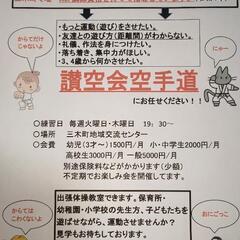 ・もっと運動（遊び）をさせたい。
・友達との遊び方（距離間）がわからない。
・礼儀、作法を身につけたい。
・落ち着き、集中力がほしい。
・3、4歳から何かさせたい。
からてだけ
じゃないよ
にゃー
讃空会空手道
にお任せください！！
○練習日　毎週火曜日・木曜日　19：30～
○場所　三木町地域交流センター
○会費　幼児（3才～）1500円/月　小・中学生2000円/月
高校生3000円/月　一般5000円/月
別途保険料などがかかります（少額）
不定期でお楽しみ会を開催してます。
出張体操教室できます。保育所・
幼稚園・小学校の先生方、子どもたちを
遊ばせながら、運動させませんか？
見学もお待ちしております。
からては
こわくないよ
おにごっこ